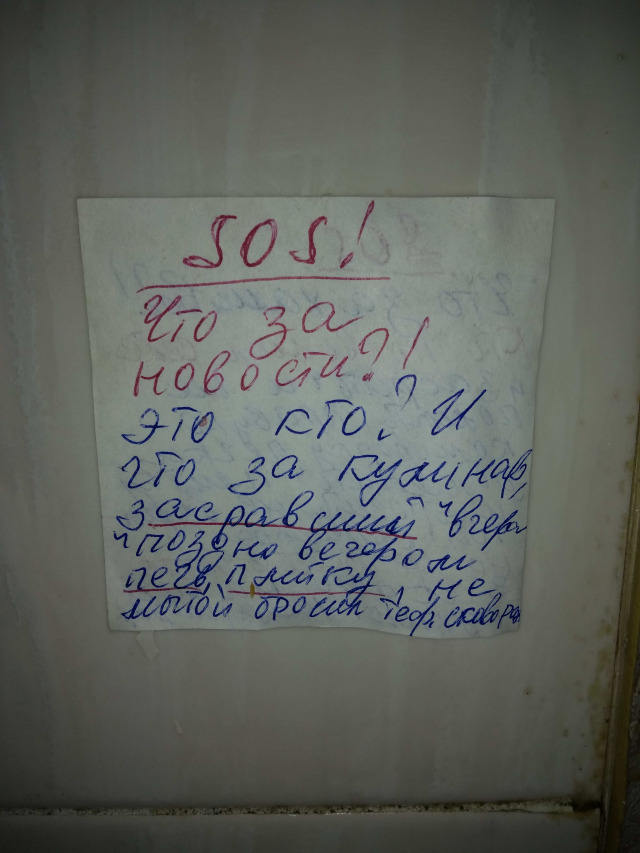 SOS!
Что за
новости?!
Это кто? И
что за кулинар,
засравший "вчера
"поздно вечером
печь, плитку, не
мытой бросил сковород